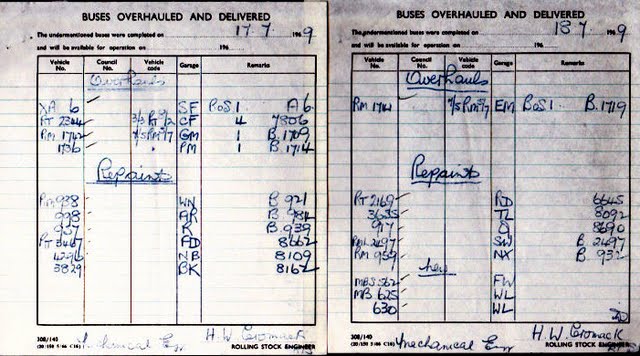 BUSES OVERHAULED AND DELIVERED
The undermentioned buses were completed on 17.7 1969
and will be available for operation on 196
Vehicle No. Council No. Vehicle code Garage Remarks
Overhauls
XA 6 SF BoS 1 A 6
RT 2344 3/3 RT9/2 CF 4 7806
RM 1742 7/5 RM3/7 GM 1 B.1709
1736 " PM 1 B.1714
Repaints
RM 938 WN B 921
998 AR B 984
957 R B.939
RT 3447 AD 8662
4296 NB 8109
3829 BK 8162
308/140
(20/150 5/66 C16) Mechanical Eng H.W. Cromack
ROLLING STOCK ENGINEER
BUSES OVERHAULED AND DELIVERED
The undermentioned buses were completed on 18 7 1969
and will be available for operation on 196
Vehicle No. Council No. Vehicle code Garage Remarks
Overhauls
RM 1741 7/5 RM3/7 EM BoS 1 B.1719
Repaints
RT 2169 RD 6645
3635 TL 8092
917 Q 8690
RML 2497 SW B 2497
RM 959 NX B 932
New
MBS 562 FW
MB 625 WL
630 WL
308/140
(20/150 5/66 C16) Mechanical Eng H.W. Cromack
ROLLING STOCK ENGINEER